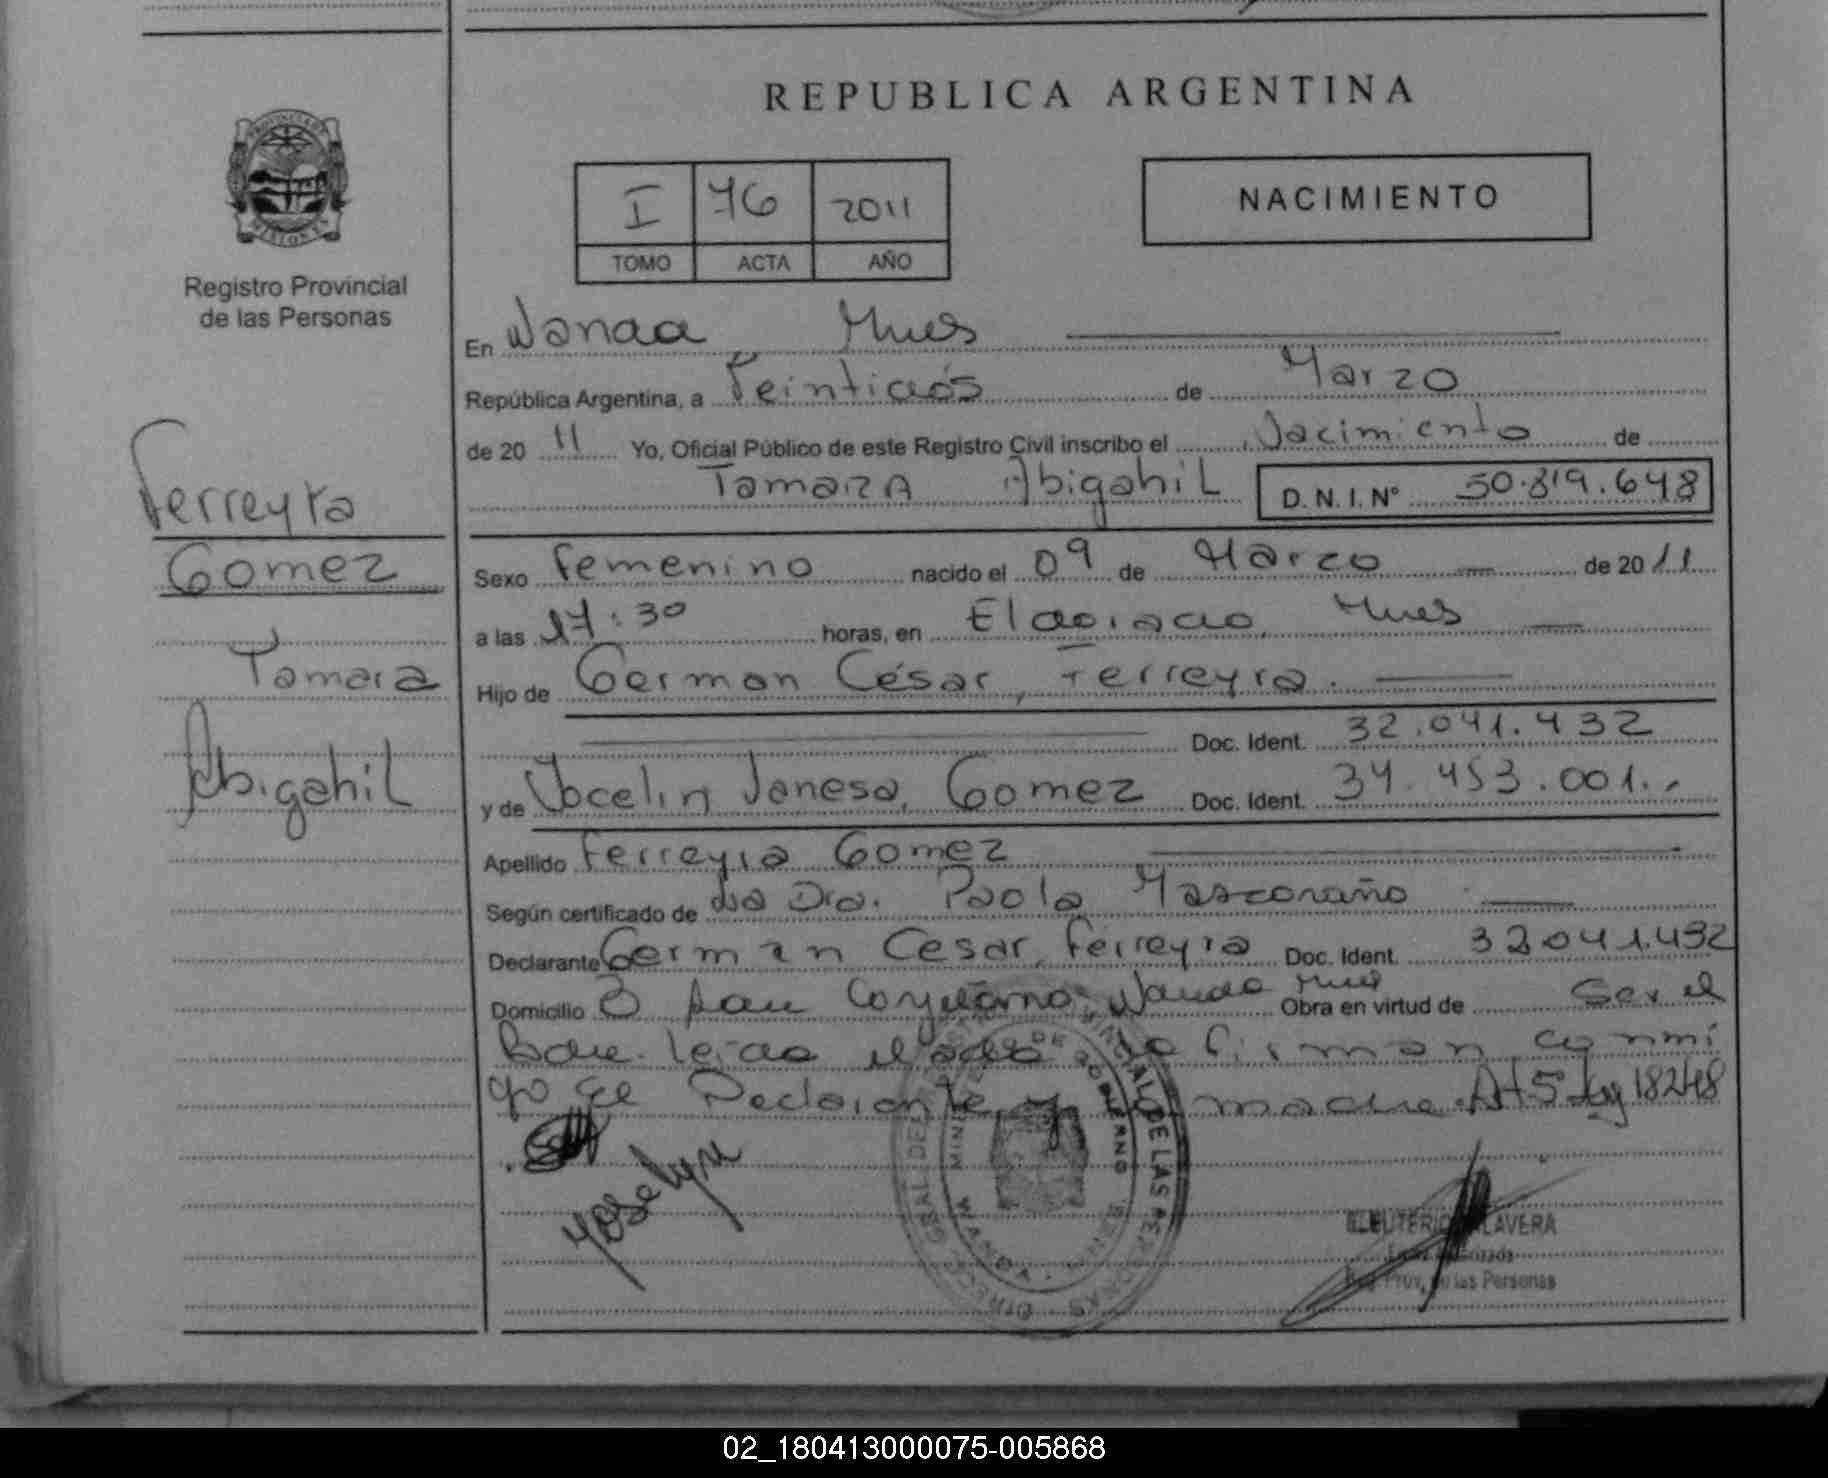 REPUBLICA ARGENTINA
PROVINCIA DE MISIONES
Registro Provincial
de las Personas
I 76 2011
TOMO ACTA AÑO
NACIMIENTO
En Wanda Mnes
República Argentina, a Veintidós de Marzo
de 20 11 Yo, Oficial Público de este Registro Civil inscribo el Nacimiento de
Tamara Abigahil D.N.I. Nº 50.819.648
Ferreyra
Gomez
Tamara
Abigahil
Sexo Femenino nacido el 09 de Marzo de 20 11
a las 17:30 horas, en Eldorado, Mnes
Hijo de German César, Ferreyra.
Doc. Ident. 32.041.432
y de Yocelin Vanesa, Gomez Doc. Ident. 34.453.001.-
Apellido Ferreyra Gomez
Según certificado de La Dra. Paola
Declarante German Cesar, Ferreyra Doc. Ident. 32.041.432
Domicilio Bº San Cayetano, Wanda Mnes Obra en virtud de Ser el
Padre. leida el acta la firman conmi
go el Declarante y la madre. Art 5 Ley 18248
MINISTERIO DE GOBIERNO
WANDA
ELEUTERIO TALAVERA
Reg. Prov. de las Personas
02_180413000075-005868